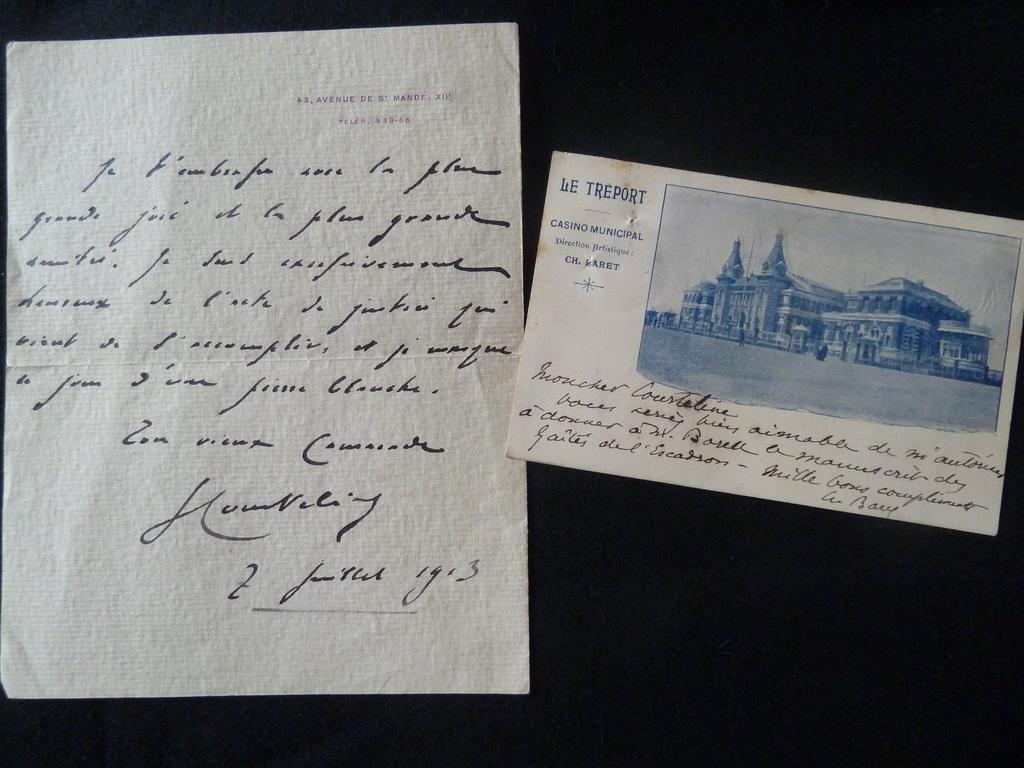 43, AVENUE DE St MANDÉ. XIIe
TÉLÉP. 939-66
Je t'embrasse avec la plus
grande joie et la plus grande
amitié. Je suis excessivement
heureux de l'acte de justice qui
vient de s'accomplir, et je marque
ce jour d'une pierre blanche.
Ton vieux Camarade
GCourteline
7 Juillet 1913
LE TRÉPORT
CASINO MUNICIPAL
Direction Artistique:
CH. BARET
Mon cher Courteline
vous seriez bien aimable de m'autoriser
à donner à M. le manuscrit des
Gaîtés de l'Escadron - Mille bons compliments
Ch Baret